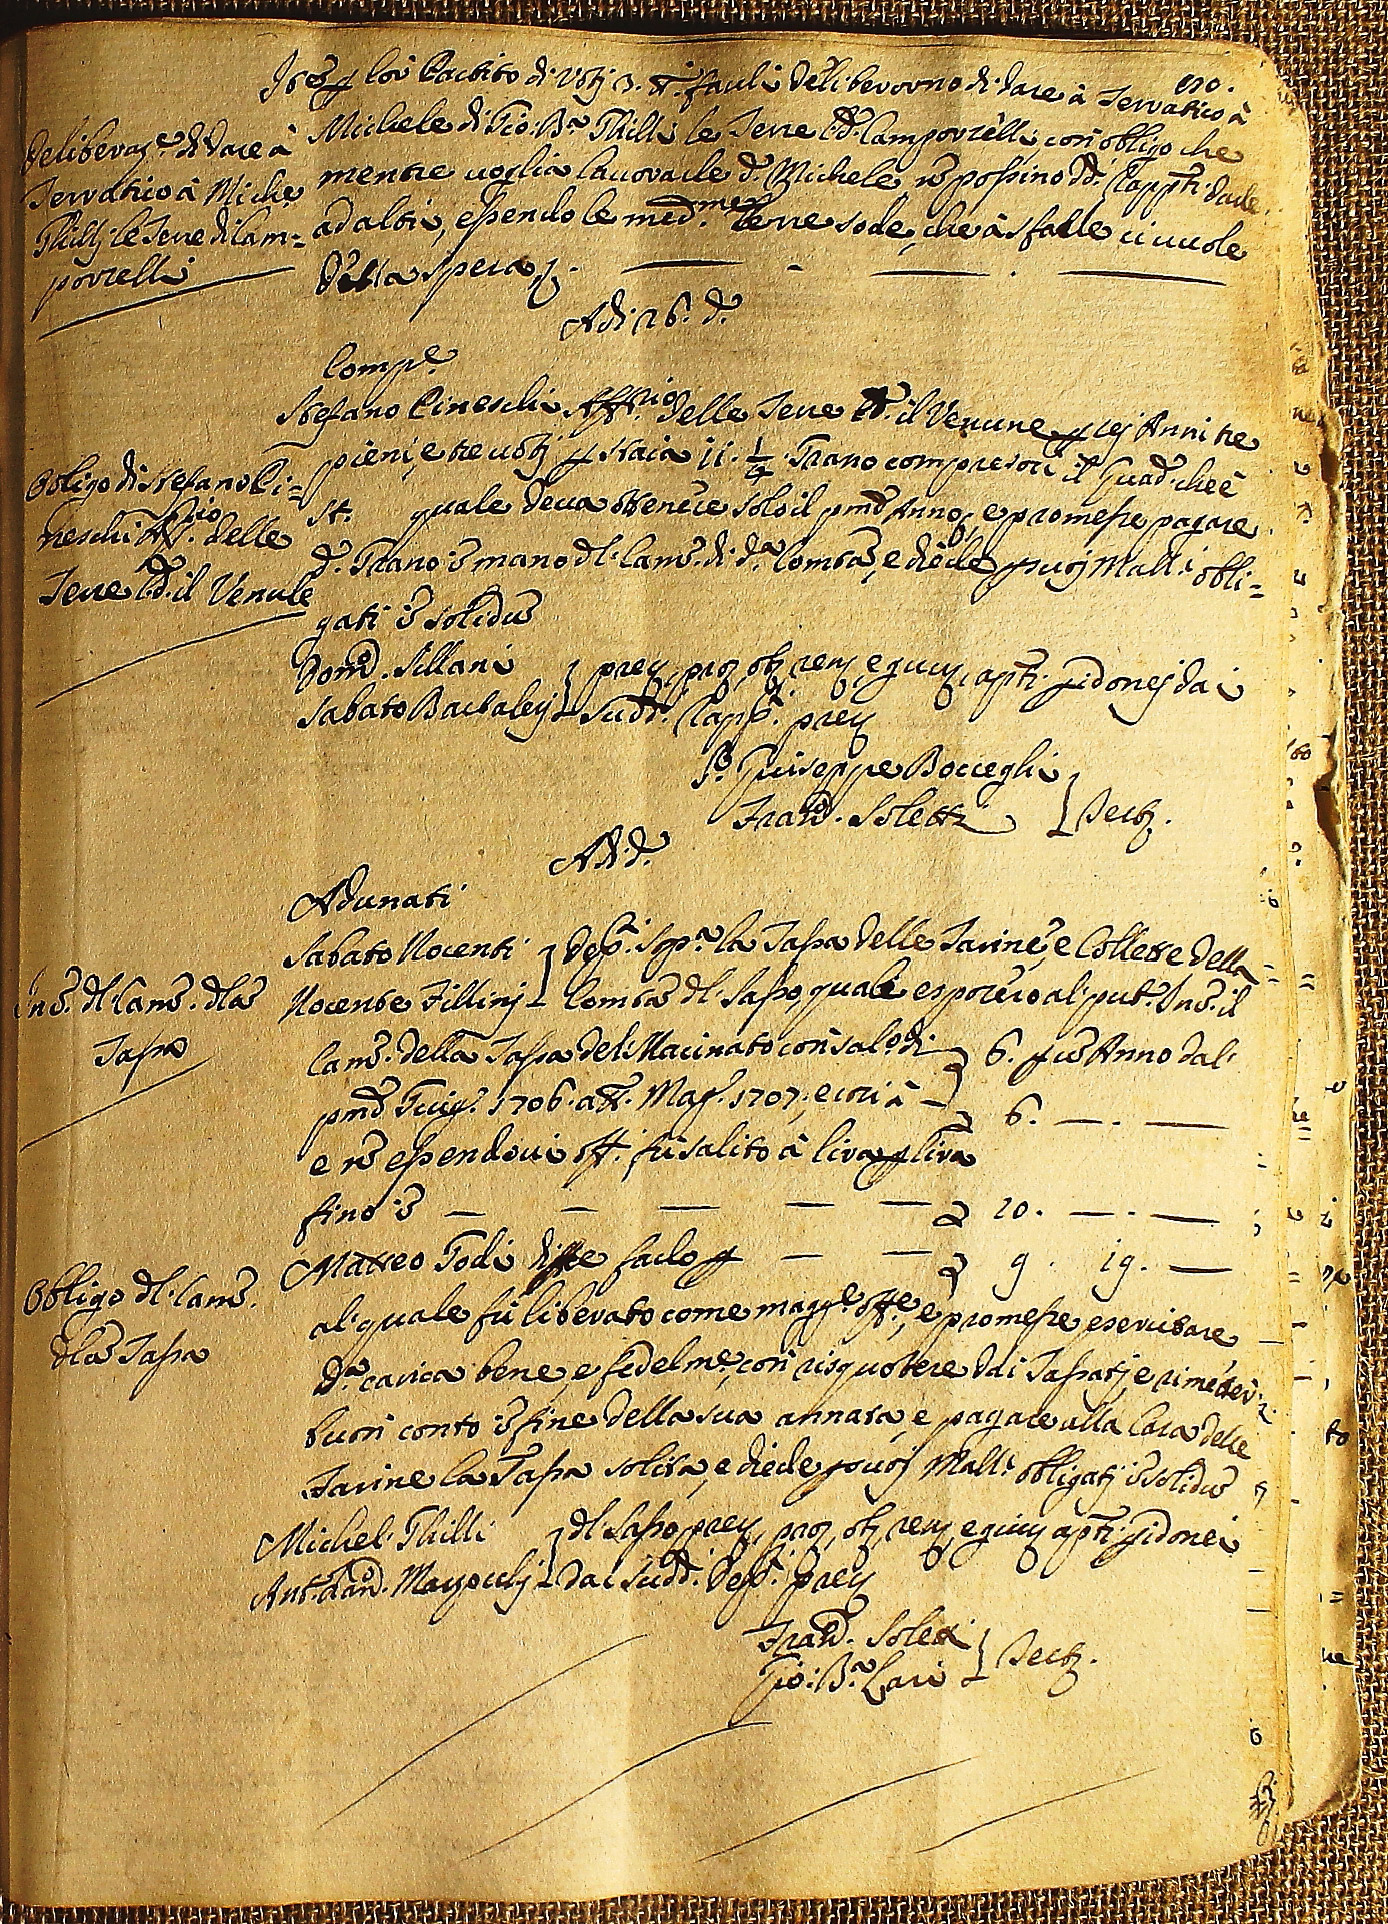 110.
Item p loi Partito di Voti 3. tt.i fauli Deliberorno di dare à Terratico à
Michele di Gio: Ba. Ghilli le Terre l.d. Camporcelli con obligo che
mentre voglia lavorarle do. Michele no possino dd.i Rapp.ti darle
ad altri, essendo le med.me Terre sode, che à sfalle ci vuole
della spesa.
Deliberaz.e di dare à
Terratico à Miche
Ghilli le Terre di Cam=
porcelli
Adi 26. do.
Comp.e
Stefano Cineschi Aff.rio delle Terre l.d. il Venune p sej Anni tre
pieni, e tre voti p Staia 11. 1/2 Grano compresovi il Quad. che è
St. quale deva ottenere solo il pmo Anno, e promesse pagare
do. Grano in mano dl Cam.o di da. Comta, e diede p suoi Mall.i obli=
gati in solidum
Obligo di Stefano Ci=
neschi Aff.rio delle
Terre l.d. il Venule
Dom.o Sillani
Sabato Barbalej
prej, proz, obj, renj, e qucj, apti, jdonej dai
Sudd. Rapp.ti prej
Po. Giuseppe Bocceghi
Franco. Soletti
Testj.
Adi do.
Adunati
Sabato Nocenti
Nocente Fillinj
Dep.i Sop.a la Tassa delle Farine, e Collette della
Comta dl Sasso, quale esposero al pub.o Inc.o il
Cam.o della Tassa del Macinato con sal.o di 6. p un Anno dal
pmo Giug.o 1706. a tt.o Mag.o 1707, e così à — 6. — . —
e no essendovi off. fù salito à lira p lira
fino in — — — — — 10. — . —
Inc.o dl Cam.o dla
Tassa
Matteo Godi disse farlo p — — 9. 19. —
al quale fù liberato come magg.e off.e, e promesse esercitare
da. carica bene, e fedelm.e, con risquotere dai Tassatj, e rimetter
buon conto in fine della sua annata, e pagare alla Casa delle
Farine la Tassa solita, e diede p suoi Mall.i obligatj in solidum
Obligo dl Cam.o
dla Tassa
Michel Ghilli
Ant. Mazzocchj
dl Sasso prej, proz, obj, renj, e qucj apti, jdonei
dai Sudd.i Dep.i prej
Franco. Soletti
Gio: Ba. Lari
Testj.